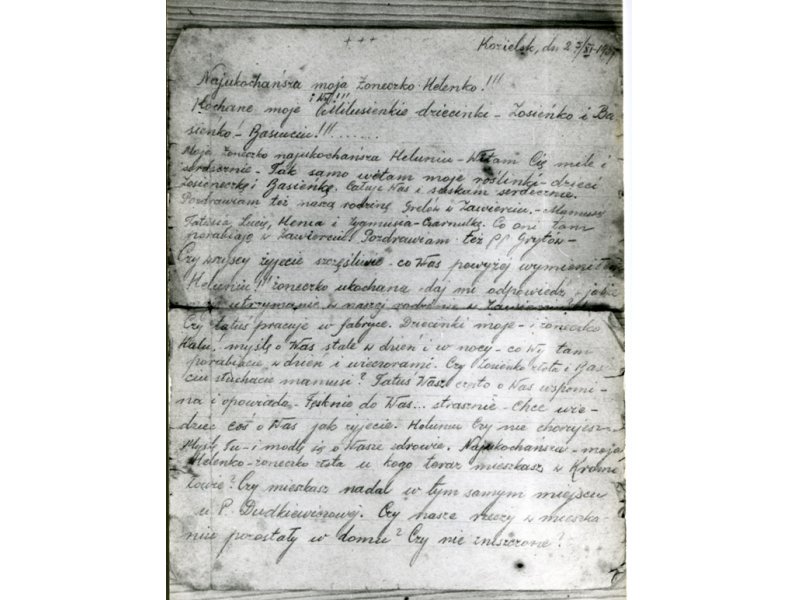 +++
Kozielsk, dn 27/XI-1939
Najukochańsza moja żoneczko Helenko!!!
i Wy!!!
Kochane moje Milusieńkie dziecinki - Zosieńko i Ba
sieńko - Basiuciu!!!......
Moja żoneczko najukochańsza Heluniu - Witam Cię mile i
serdecznie. Tak samo witam moje roślinki - dzieci
Zosieneczkę i Basienkę. Całuję Was i ściskam serdecznie.
Pozdrawiam też naszą rodzinę Grelów w Zawierciu. - Mamusię
Tatusia, Lucię, Henia i Zygmusia - Czarnulkę. Co oni tam
porabiają w Zawierciu. Pozdrawiam też PP Grytów -
Czy wszyscy żyjecie szczęśliwie - co Was powyżej wymieniłem
Heluniu!! żoneczko ukochana daj mi odpowiedź - jakie
utrzymanie w naszej rodzinie w Zawierciu?
Czy tatuś pracuje w fabryce. Dziecinki moje - i żoneczko
Halu, myślę o Was stale w dzień i w nocy - co Wy tam
porabiacie w dzień i wieczorami. Czy Zosieńko złota i Bas
ciu słuchacie mamusi? Tatuś Wasz często o Was wspomi-
na i opowiada - Tęsknię do Was... strasznie - Chcę wie-
dzieć coś o Was jak żyjecie. Heluniu Czy nie chorujesz -
Myślę tu - i modlę się o Wasze zdrowie. Najukochańsza - moja
Helenko - żoneczko złota u kogo teraz mieszkasz w Kromo
łowie? Czy mieszkasz nadal w tym samym miejscu
u P. Dudkiewiczowej. Czy nasze rzeczy w mieszka-
niu pozostały w domu? Czy nie zniszczone?